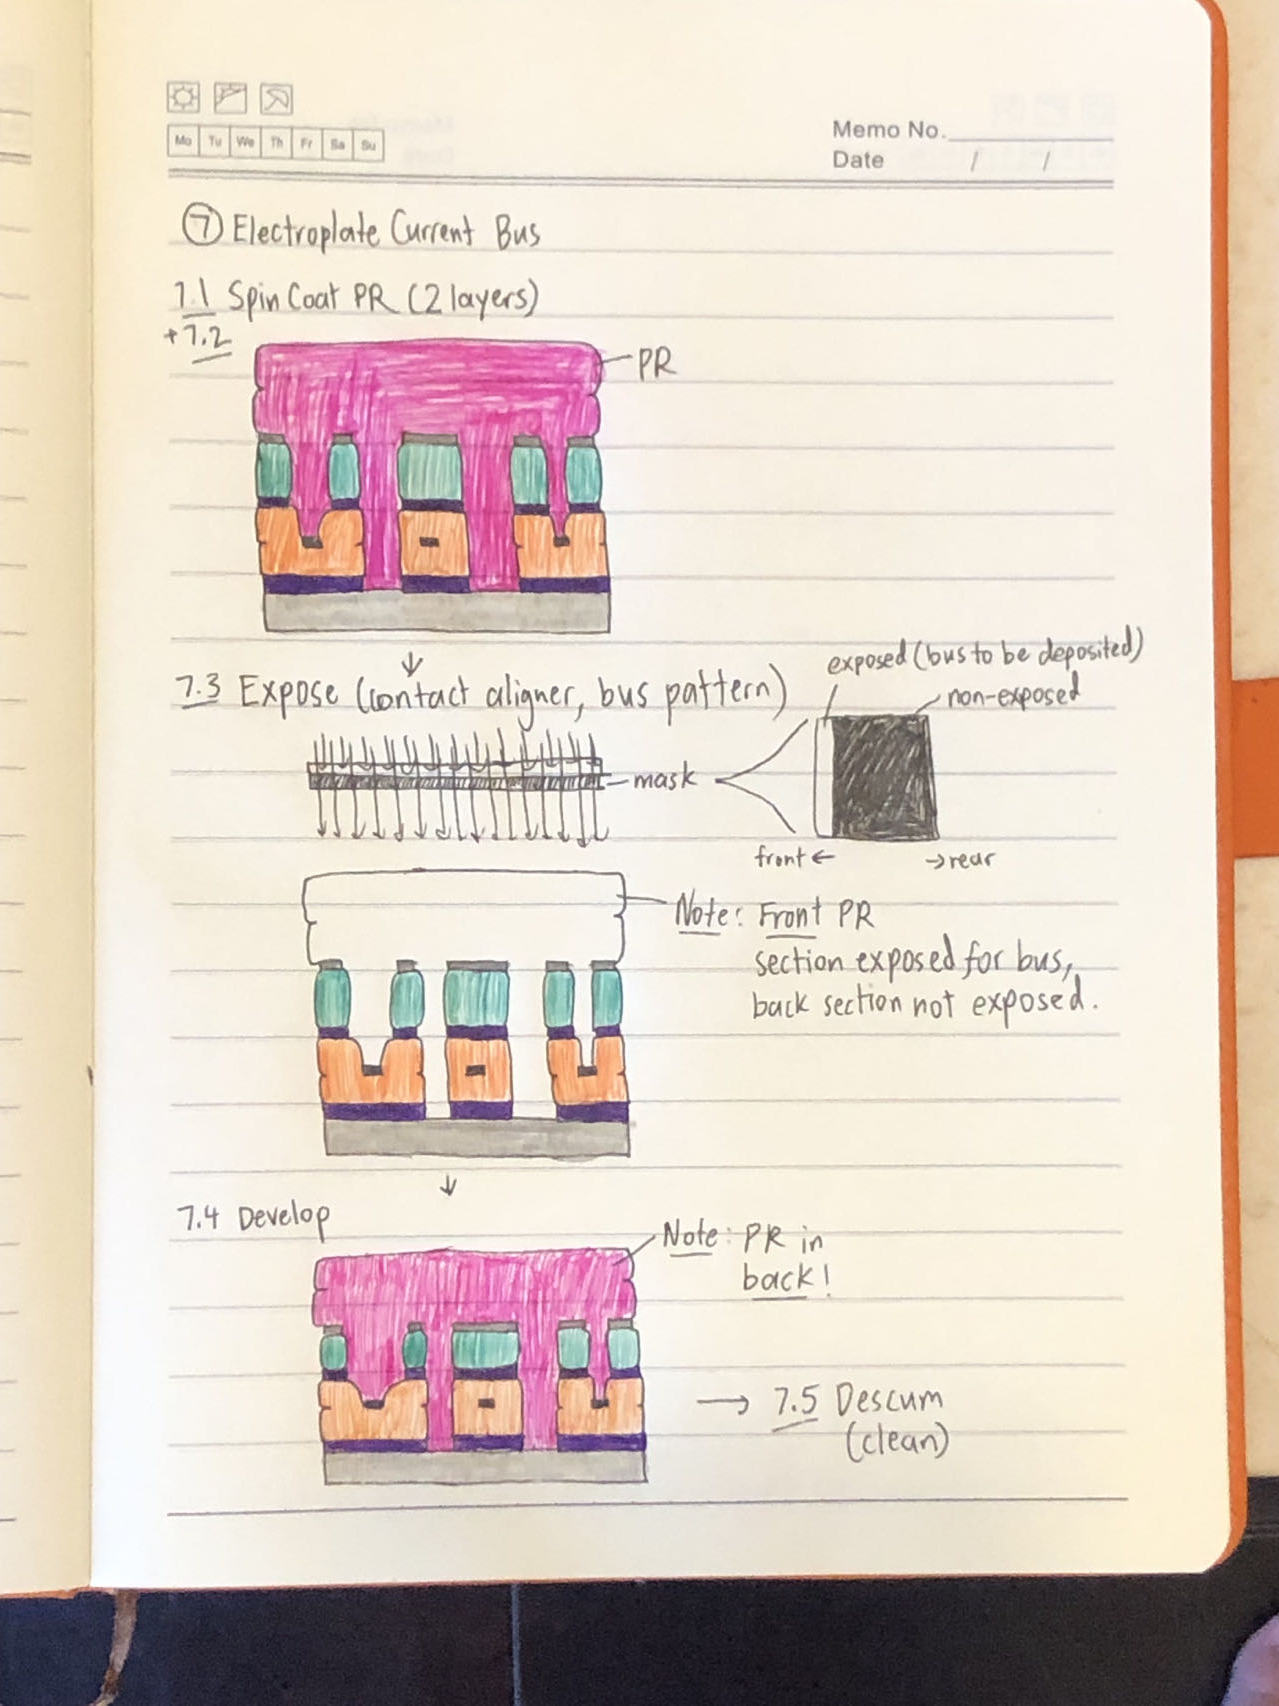 Mo Tu We Th Fr Sa Su
Memo No.
Date / /
⑦ Electroplate Current Bus
7.1 Spin Coat PR (2 layers)
+7.2
PR
7.3 Expose (contact aligner, bus pattern)
exposed (bus to be deposited)
non-exposed
mask
front ← → rear
Note: Front PR
section exposed for bus,
back section not exposed.
7.4 Develop
Note: PR in
back!
→ 7.5 Descum
(clean)